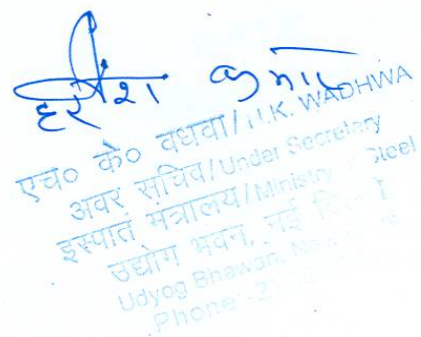 हरीश कुमार
एच० के० वधवा/H.K. WADHWA
अवर सचिव/Under Secretary
इस्पात मंत्रालय/Ministry Steel
उद्योग भवन, नई
Udyog Bhawan, New
Phone